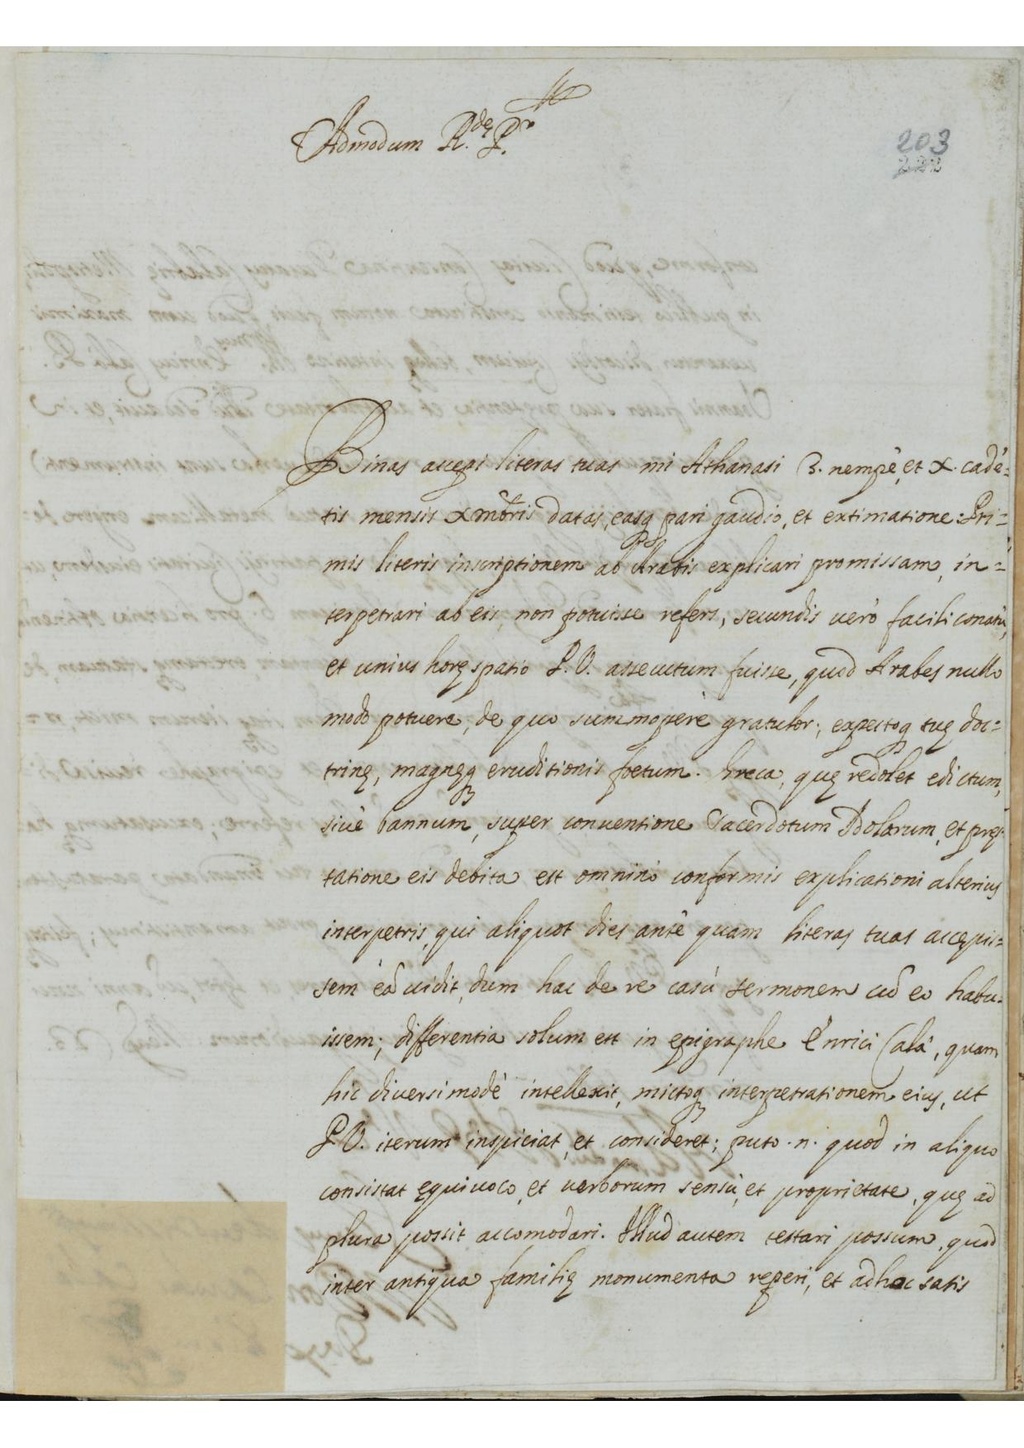 Admodum R.de P.r
203
222
Binas accepi literas tuas mi Athanasi 3. nempè, et X. cadē-
tis mensis Xmb̄ris datas, easq pari gaudio, et extimatione. Pri-
mis literis inscriptionem ab Arabis explicari promissam, in-
terpetrari ab eis, non potuisse refers, secundis verò facili conatu,
et unius horę spatio P.V. assecutum fuisse, quod Arabes nullo
modo potuere, de quo summoperè gratulor, expectoq tuę doc-
trinę, magnęq eruditionis foetum. Greca, quę redolet edictum,
sivè bannum, super conventione Sacerdotum Idolorum, et pręs-
tatione eis debita est omninò conformis explicationi alterius
interpetris, qui aliquot dies antè quam literas tuas accepis-
sem ea vidit, dum hac de re casu sermonem cū eo habu-
issem; differentia solum est in epigraphe Enrici Calà, quam
hic diversimodè intellexit, mictoq interpetrationem eius, ut
P.V. iterum inspiciat, et consideret; puto .n. quod in aliquo
consistat ęquivoco, et verborum sensu, et proprietate, quę ad
plura possit accomodari. Illud autem testari possum, quod
inter antiqua familię monumenta reperi, et adhac satis